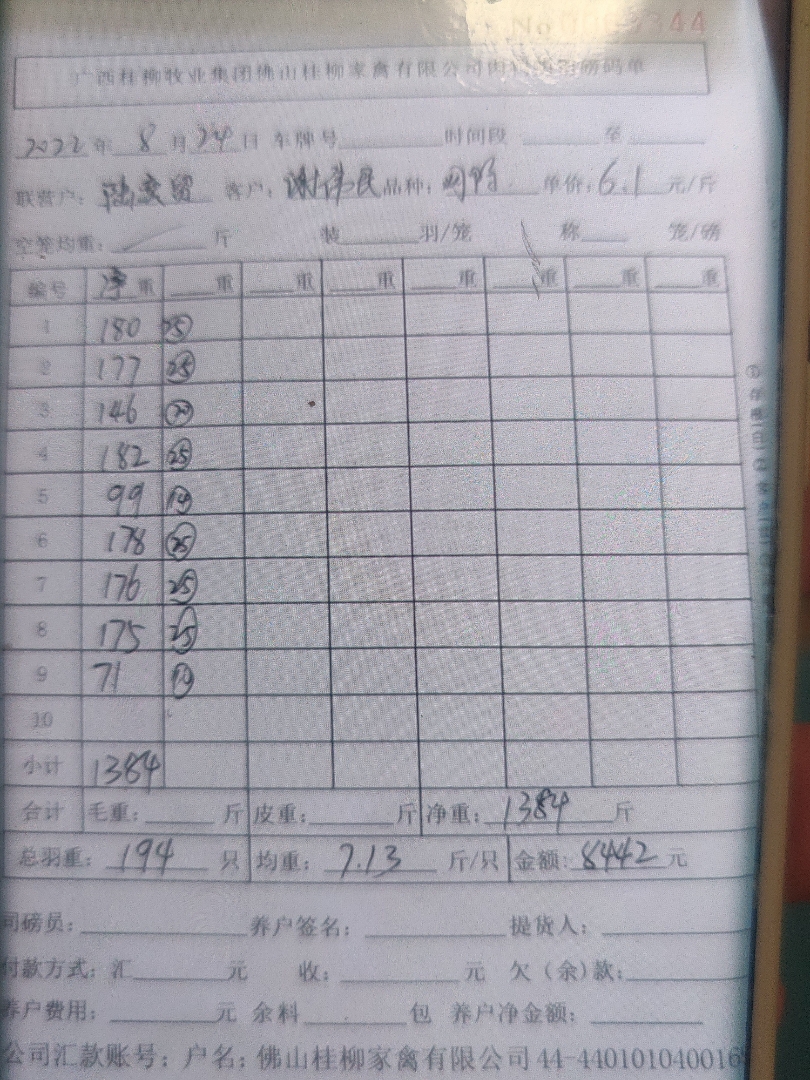 广西桂柳牧业集团佛山桂柳家禽有限公司肉鸭销售磅码单
2022年 8月24日 车牌号 时间段 至
联营户: 客户: 谢伟民 品种: 单价: 6.1 元/斤
空笼均重: 斤 装 羽/笼 称 笼/磅
编号 净重 重 重 重 重 重 重 重
1 180 25
2 177 25
3 146 20
4 182 25
5 99 14
6 178 25
7 176 25
8 175 25
9 71 10
10
小计 1384
合计 毛重: 斤 皮重: 斤 净重: 1384 斤
总羽重: 194 只 均重: 7.13 斤/只 金额: 8442 元
司磅员: 养户签名: 提货人:
付款方式: 汇 元 收: 元 欠(余)款:
养户费用: 元 余料 包 养户净金额:
公司汇款账号: 户名: 佛山桂柳家禽有限公司 44-440101040016